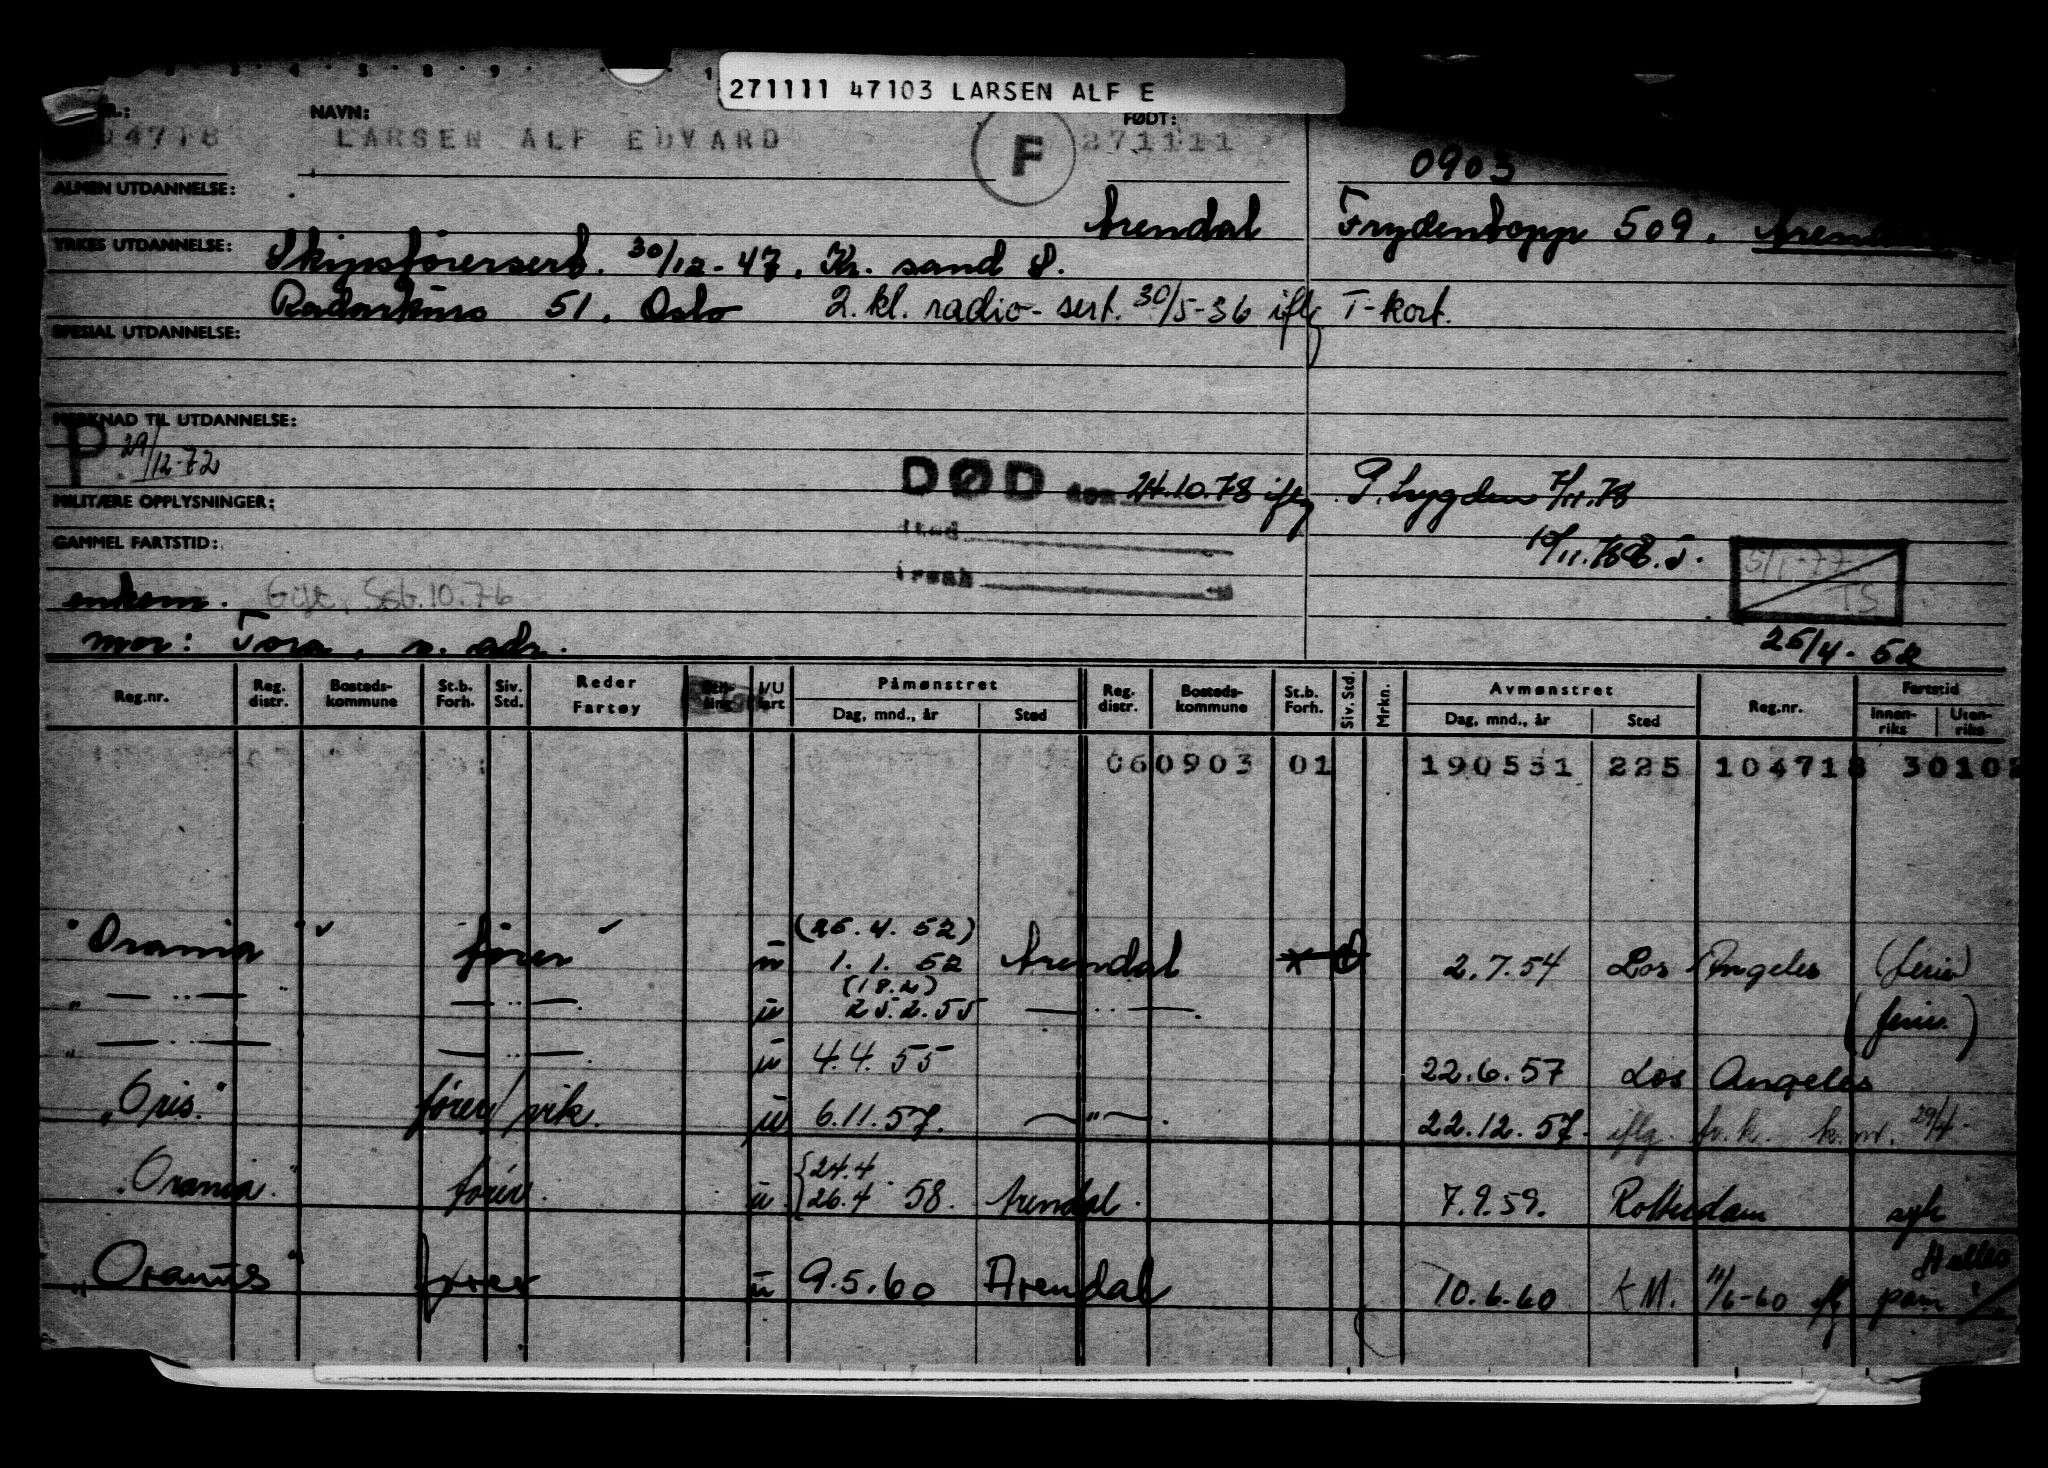 271111 47103 LARSEN ALF E
NAVN: FØDT:
04718 LARSEN ALF EDVARD F 271111
0903
ALMEN UTDANNELSE:
Arendal Frydentopp 509. Arendal
YRKES UTDANNELSE: Skipsførersert. 30/12-47. Kr. sand S.
Radarkurs 51. Oslo 2. kl. radio-sert. 30/5-36 iflg T-kort.
SPESIAL UTDANNELSE:
MERKNAD TIL UTDANNELSE:
P 29/12-72
DØD den 24.10.78 iflg P. trygden 7/11.78
MILITÆRE OPPLYSNINGER:
sted
GAMMEL FARTSTID:
5/1-77
årsak
TS
enkem. Gift, Ssb.10.76
mor: Tora, s. adr.
25/4-52
Reg.nr. Reg. distr. Bosteds-kommune St.b. Forh. Siv. Std. Reder Fartøy I/U fart Påmønstret Dag, mnd., år Sted Reg. distr. Bosteds-kommune St.b. Forh. Siv. Std. Mrkn. Avmønstret Dag, mnd., år Sted Reg.nr. Fartstid Innen-riks Uten-riks
060903 01 190551 225 104718 30102
(26.4.52)
"Orania" fører u 1.1.52 Arendal 2.7.54 Los Angeles (ferie)
(18.2)
" — " — " — " — u 25.2.55 — " — (ferie)
" — " — — " — u 4.4.55 22.6.57 Los Angeles
"Oris" fører/vik. u 6.11.57. — " — 22.12.57. iflg. fr.k. k.nr. 29/4
"Orania" fører u {24.4 26.4 58. Arendal. 7.9.59. Rotterdam syk
"Oranus" fører u 9.5.60 Arendal 10.6.60 KM. 11/6-60 iflg